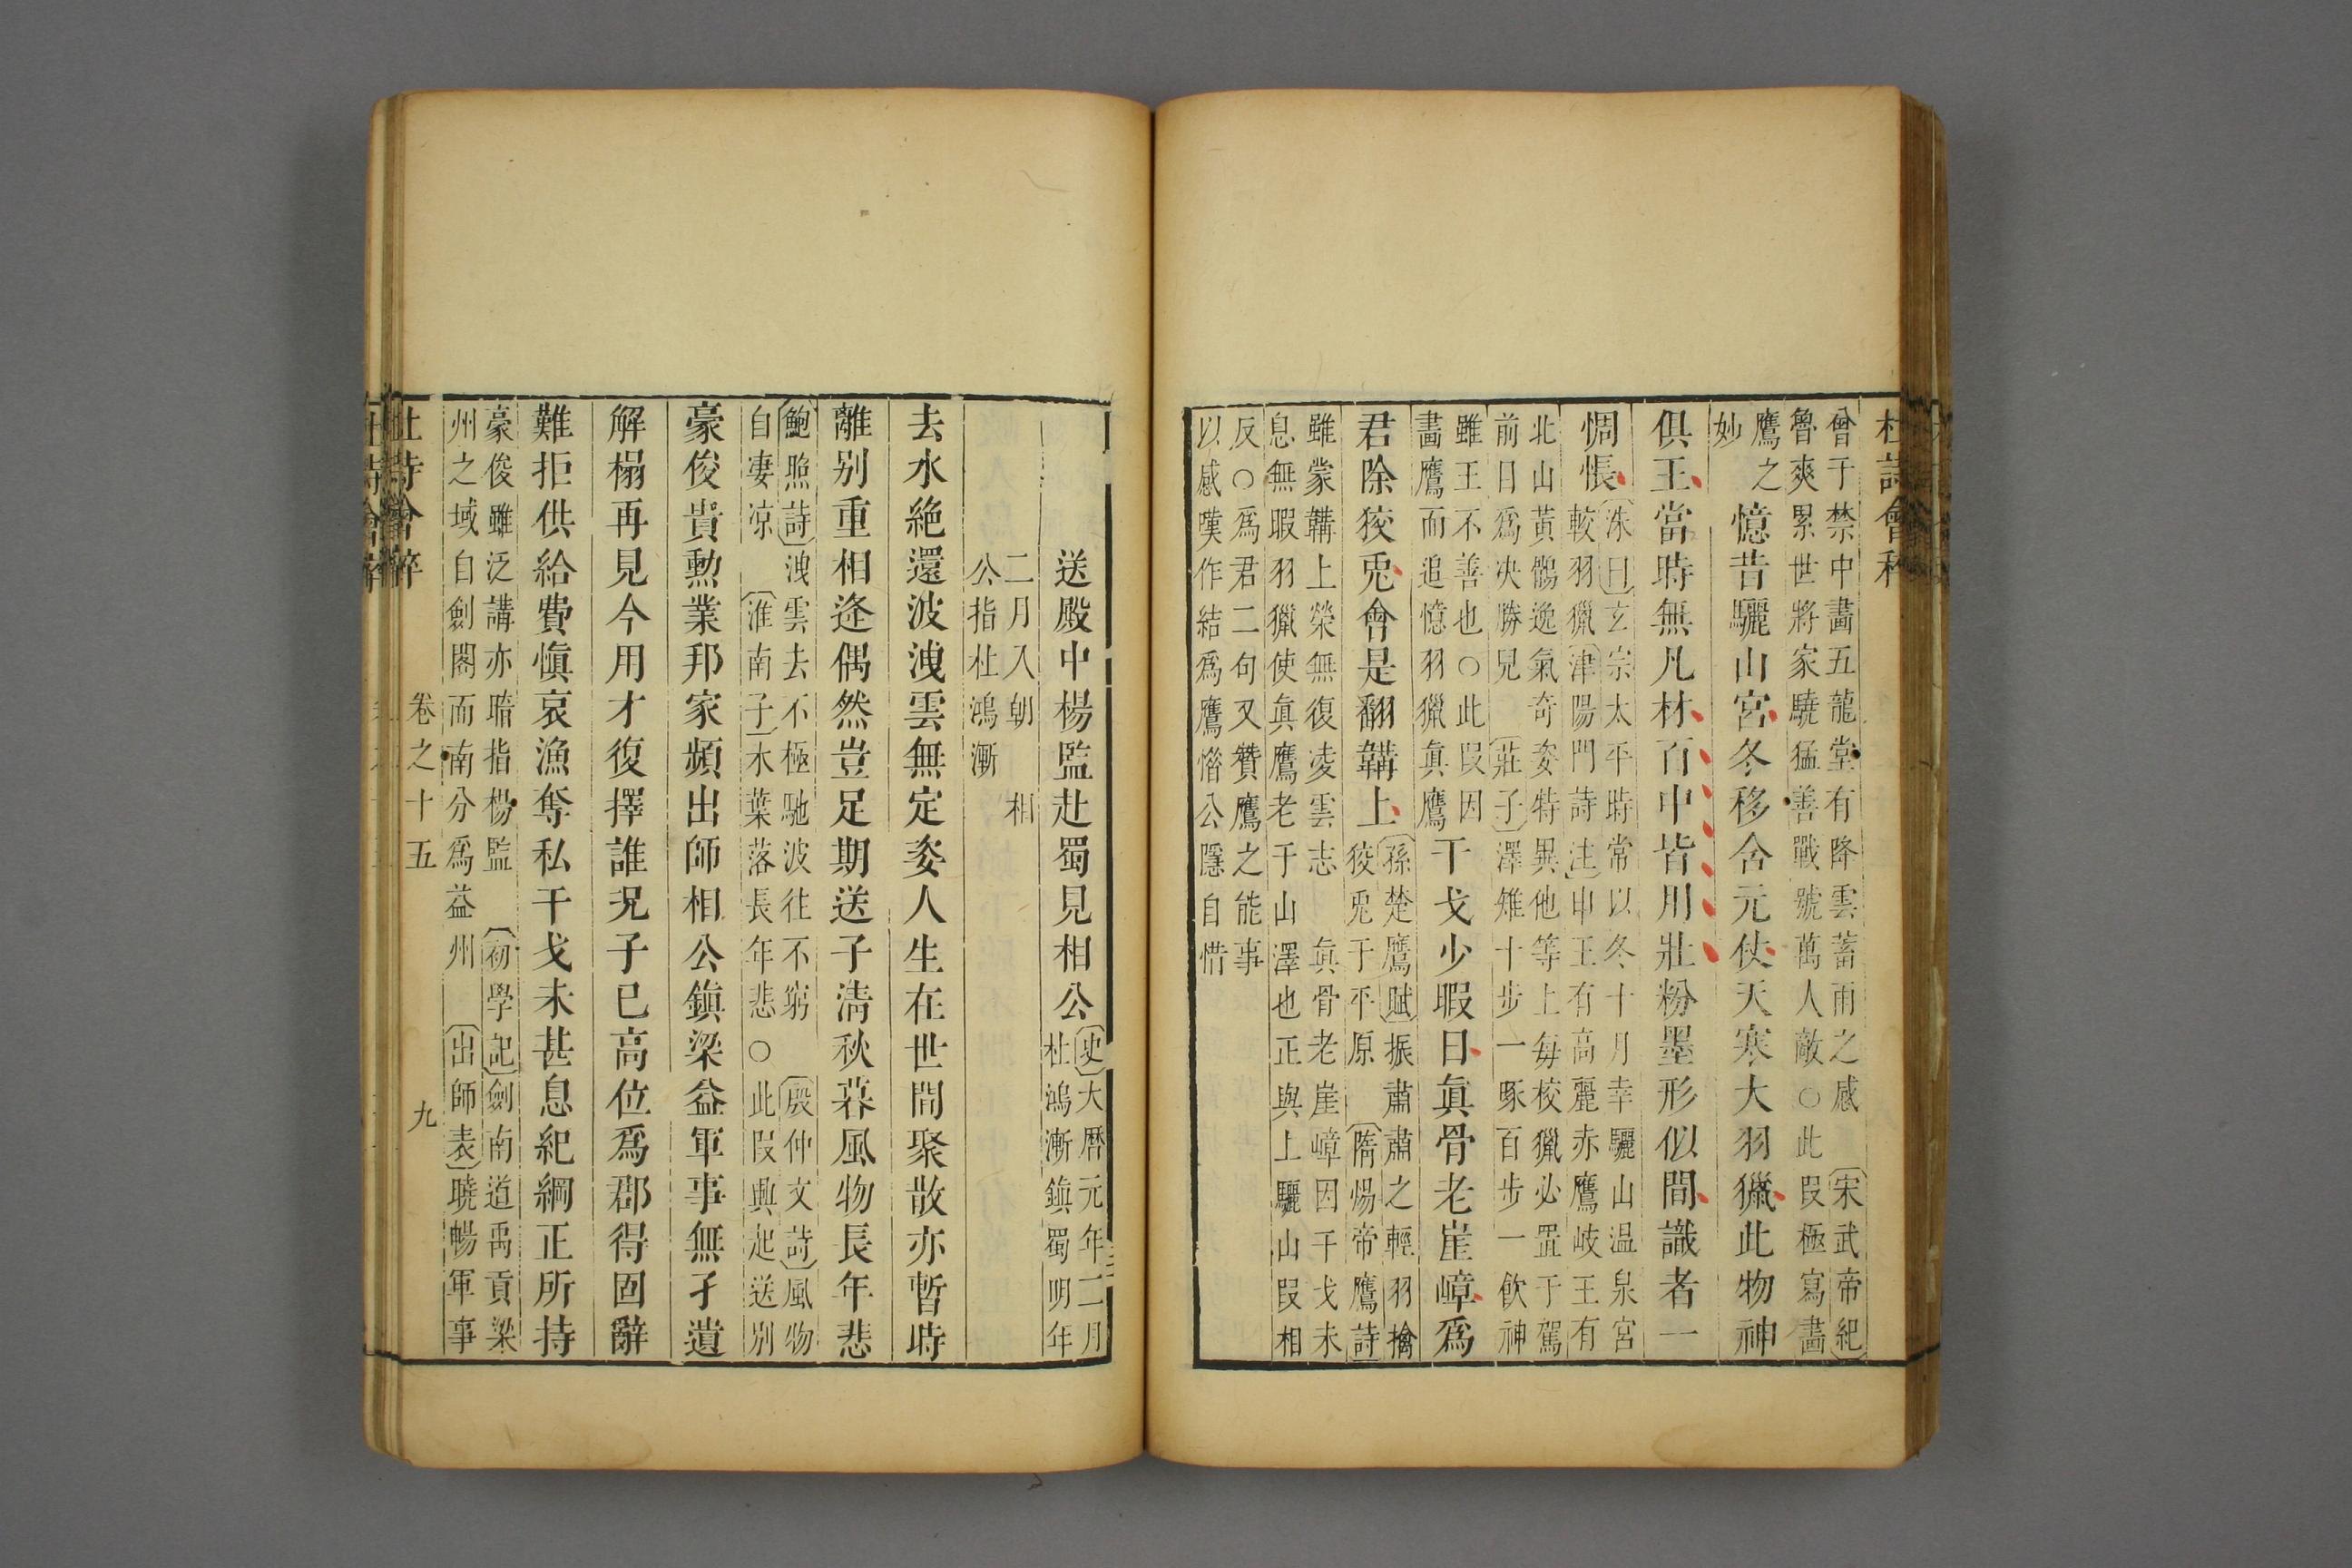 杜詩會稡
曾于禁中畵五龍堂有降雲蓄雨之感〔宋武帝紀〕
魯爽累世將家驍猛善戰號萬人敵○此叚極寫畵
鷹之
妙
憶昔驪山宮冬移含元仗天寒大羽獵此物神
俱王當時無凡材百中皆用壯粉墨形似間識者一
惆悵
〔洙曰〕玄宗太平時常以冬十月幸驪山温泉宮
較羽獵〔津陽門詩注〕申王有高麗赤鷹岐王有
北山黃鶻逸氣奇姿特異他等上每校獵必置于駕
前目爲决勝兒〔莊子〕澤雉十步一啄百步一飲神
雖王不善也○此叚因
畵鷹而追憶羽獵眞鷹
干戈少暇日眞骨老崖嶂爲
君除狡兎會是翻韝上
〔孫楚鷹賦〕振肅肅之輕羽擒
狡兎于平原〔隋煬帝鷹詩〕
雖蒙韝上榮無復凌雲志 眞骨老崖嶂因干戈未
息無暇羽獵使眞鷹老于山澤也正與上驪山叚相
反○爲君二句又贊鷹之能事
以感嘆作結爲鷹惜公隱自惜
送殿中楊監赴蜀見相公
〔史〕大曆元年二月
杜鴻漸鎮蜀明年
二月入朝 相
公指杜鴻漸
去水絶還波洩雲無定姿人生在世間聚散亦暫時
離别重相逢偶然豈足期送子淸秋暮風物長年悲
〔鮑照詩〕洩雲去不極馳波往不窮〔殷仲文詩〕風物
自凄凉〔淮南子〕木葉落長年悲○此叚興起送别
豪俊貴勲業邦家頻出師相公鎭梁益軍事無孑遺
解榻再見今用才復擇誰况子已高位爲郡得固辭
難拒供給費愼哀漁奪私干戈未甚息紀綱正所持
豪俊雖泛講亦暗指楊監〔初學記〕劍南道禹貢梁
州之域自劍閣而南分爲益州〔出師表〕曉暢軍事
杜詩會稡 卷之十五 九